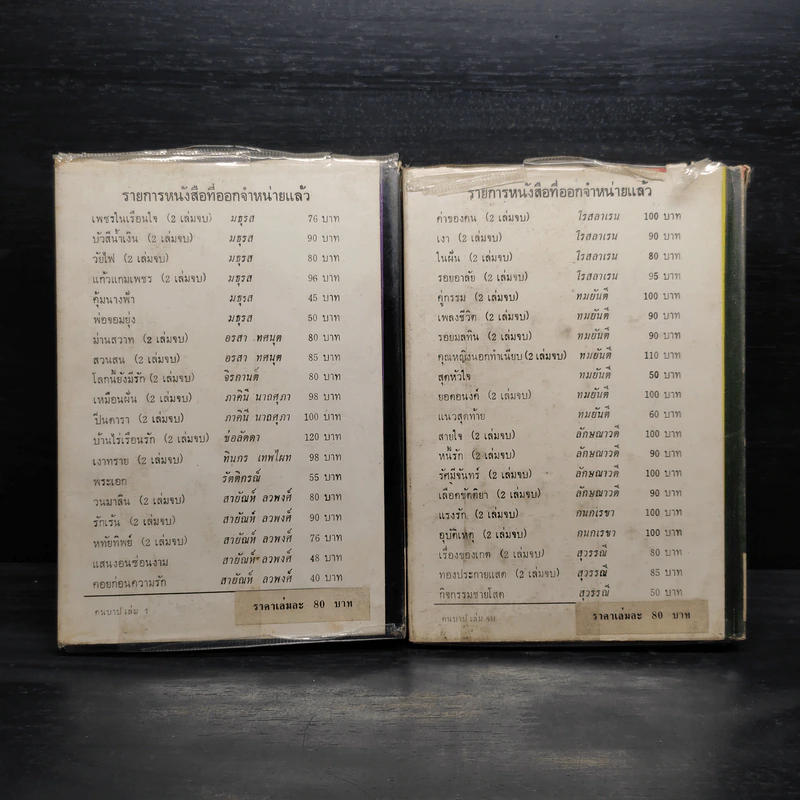 รายการหนังสือที่ออกจำหน่ายแล้ว
เพชรในเรือนใจ (2 เล่มจบ) มธุรส 76 บาท
บัวสีน้ำเงิน (2 เล่มจบ) มธุรส 90 บาท
วัยไฟ (2 เล่มจบ) มธุรส 80 บาท
แก้วแกมเพชร (2 เล่มจบ) มธุรส 96 บาท
คุ้มนางฟ้า มธุรส 45 บาท
พ่อจอมยุ่ง มธุรส 50 บาท
ม่านสวาท (2 เล่มจบ) อรสา ทศนุต 80 บาท
สวนสน (2 เล่มจบ) อรสา ทศนุต 85 บาท
โลกนี้ยังมีรัก (2 เล่มจบ) จิรกานต์ 80 บาท
เหมือนฝัน (2 เล่มจบ) ภาคินี นาถศุภา 98 บาท
ปิ่นดารา (2 เล่มจบ) ภาคินี นาถศุภา 100 บาท
บ้านไร่เรือนรัก (2 เล่มจบ) ช่อลัดดา 120 บาท
เงาทราย (2 เล่มจบ) ทินกร เทพไผท 98 บาท
พระเอก รัตติกรณ์ 55 บาท
วนมาลิน (2 เล่มจบ) สายัณห์ ลวพงศ์ 80 บาท
รักเร้น (2 เล่มจบ) สายัณห์ ลวพงศ์ 90 บาท
หทัยทิพย์ (2 เล่มจบ) สายัณห์ ลวพงศ์ 76 บาท
แสนงอนซ่อนงาม สายัณห์ ลวพงศ์ 48 บาท
คอยก่อนความรัก สายัณห์ ลวพงศ์ 40 บาท
คนบาป เล่ม 1
ราคาเล่มละ 80 บาท
รายการหนังสือที่ออกจำหน่ายแล้ว
ค่าของคน (2 เล่มจบ) โรสลาเรน 100 บาท
เงา (2 เล่มจบ) โรสลาเรน 90 บาท
ในฝัน (2 เล่มจบ) โรสลาเรน 80 บาท
รอยอาลัย (2 เล่มจบ) โรสลาเรน 95 บาท
คู่กรรม (2 เล่มจบ) ทมยันตี 100 บาท
เพลงชีวิต (2 เล่มจบ) ทมยันตี 90 บาท
รอยมลทิน (2 เล่มจบ) ทมยันตี 90 บาท
คุณหญิงนอกทำเนียบ (2 เล่มจบ) ทมยันตี 110 บาท
สุดหัวใจ ทมยันตี 50 บาท
ยอดอนงค์ (2 เล่มจบ) ทมยันตี 100 บาท
แนวสุดท้าย ทมยันตี 60 บาท
สายใจ (2 เล่มจบ) ลักษณาวดี 100 บาท
หนี้รัก (2 เล่มจบ) ลักษณาวดี 90 บาท
รัศมีจันทร์ (2 เล่มจบ) ลักษณาวดี 100 บาท
เลือดขัตติยา (2 เล่มจบ) ลักษณาวดี 90 บาท
แรงรัก (2 เล่มจบ) กนกเรขา 100 บาท
อุบัติเหตุ (2 เล่มจบ) กนกเรขา 100 บาท
เรื่องของเกด (2 เล่มจบ) สุวรรณี 80 บาท
ทองประกายแสด (2 เล่มจบ) สุวรรณี 85 บาท
กิจกรรมชายโสด สุวรรณี 50 บาท
คนบาป เล่ม จบ
ราคาเล่มละ 80 บาท